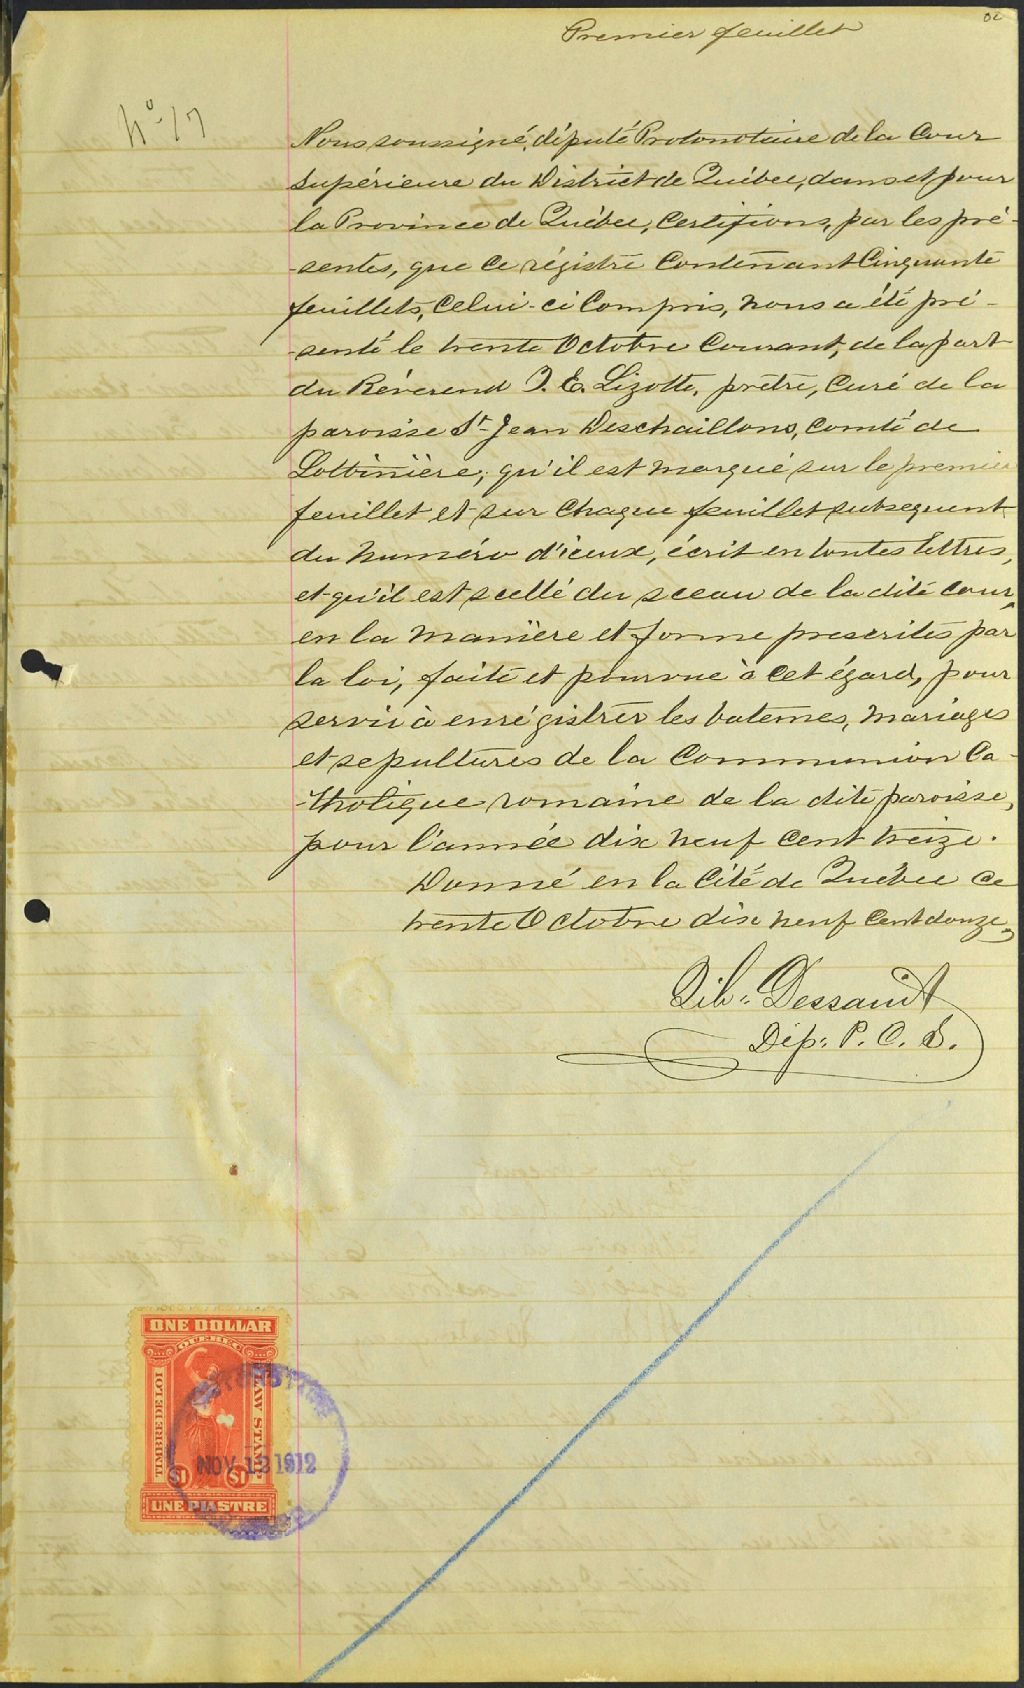 Premier feuillet
No 17
Nous soussigné, député Protonotaire de la Cour
Supérieure du District de Québec, dans et pour
la Province de Québec, Certifions, par les pré-
-sentes, que ce régistre Contenant Cinquante
feuillets, Celui-ci Compris, nous a été pré-
-senté le trente Octobre Courant, de la part
du Révérend J. E. Lizotte, prêtre, Curé de la
paroisse St Jean Deschaillons, Comté de
Lotbinière; qu'il est marqué sur le premier
feuillet et sur Chaque feuillet subsequent
du numéro d'iceux, écrit en toutes lettres,
et qu'il est scellé du sceau de la dite Cour,
en la manière et forme prescrites par
la loi, faite et pourvue à cet égard, pour
servir à enrégistrer les batemes, mariages
et sepultures de la Communion Ca-
-tholique romaine de la dite paroisse,
pour l'année dix neuf cent treize.
Donné en la Cité de Québec ce
trente Octobre dix neuf Cent douze,
Dessaint
Dép. P. C. S.
ONE DOLLAR
QUEBEC
TIMBRE DE LOI
LAW STAMP
$1 $1
UNE PIASTRE
NOV 12 1912